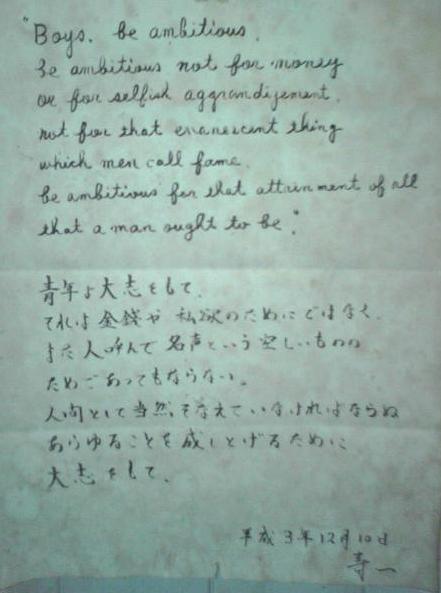 "Boys. be ambitious.
be ambitious not for money
or for selfish aggrandizement.
not for that evanescent thing
which men call fame.
be ambitious for that attainment of all
that a man ought to be."
青年よ大志をもて。
それは金銭や私欲のためにではなく、
また人呼んで名声という空しいものの
ためであってもならない。
人間として当然そなえていなければならぬ
あらゆることを成しとげるために
大志をもて。
平成3年12月10日
寿一